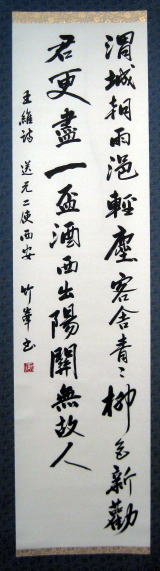 渭城朝雨浥輕塵客舍青々柳色新勸
君更盡一盃酒西出陽關無故人
王維詩 送元二使西安 竹峯書